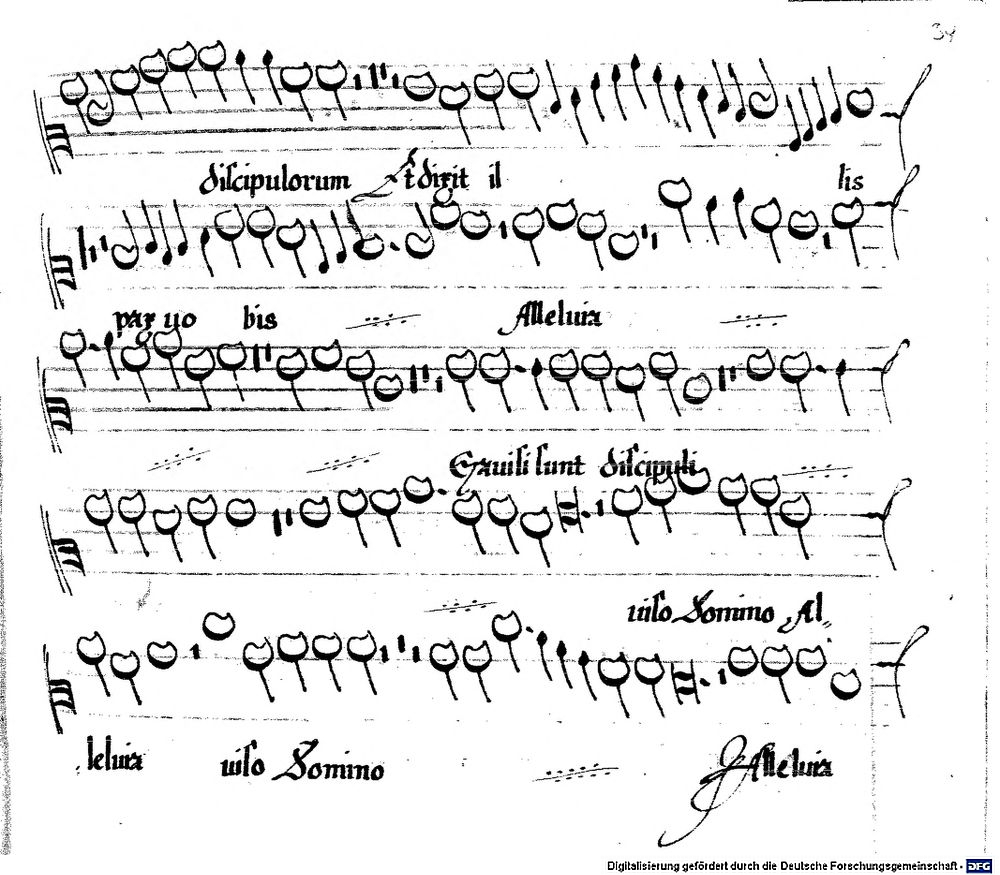 34
discipulorum Et dixit il lis
pax uo bis Alleluia
Gauisi sunt discipuli
uiso Domino Al,,
leluia uiso Domino Alleluia
Digitalisierung gefördert durch die Deutsche Forschungsgemeinschaft - DFG